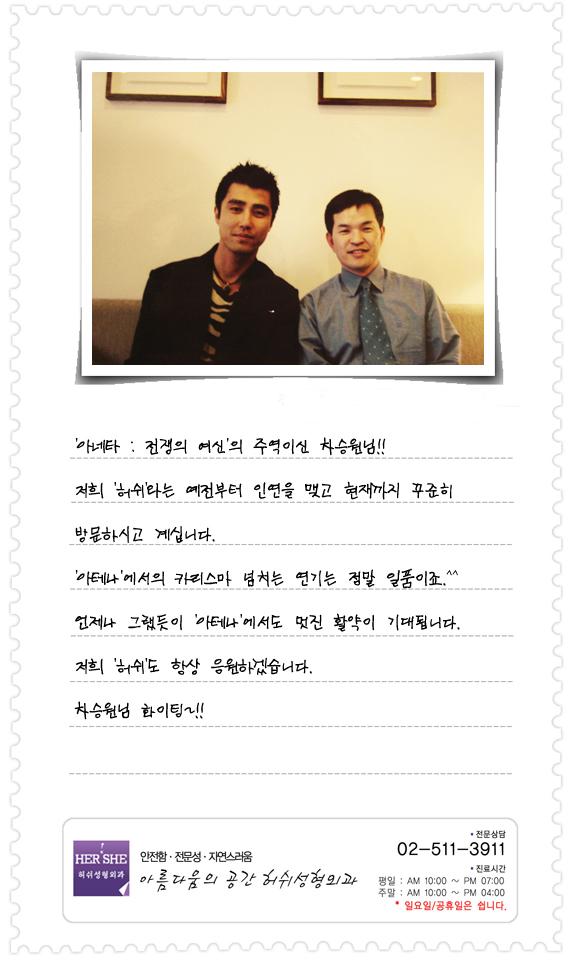 '아네타 : 전쟁의 여신'의 주역이신 차승원님!!
저희 '허쉬'라는 예전부터 인연을 맺고 현재까지 꾸준히
방문하시고 계십니다.
'아테나'에서의 카리스마 넘치는 연기는 정말 일품이죠.^^
언제나 그랬듯이 '아테나'에서도 멋진 활약이 기대됩니다.
저희 '허쉬'도 항상 응원하겠습니다.
차승원님 화이팅~!!
HER SHE
허쉬성형외과
안전함·전문성·자연스러움
아름다움의 공간 허쉬성형외과
• 전문상담
02-511-3911
• 진료시간
평일 : AM 10:00 ~ PM 07:00
주말 : AM 10:00 ~ PM 04:00
* 일요일/공휴일은 쉽니다.